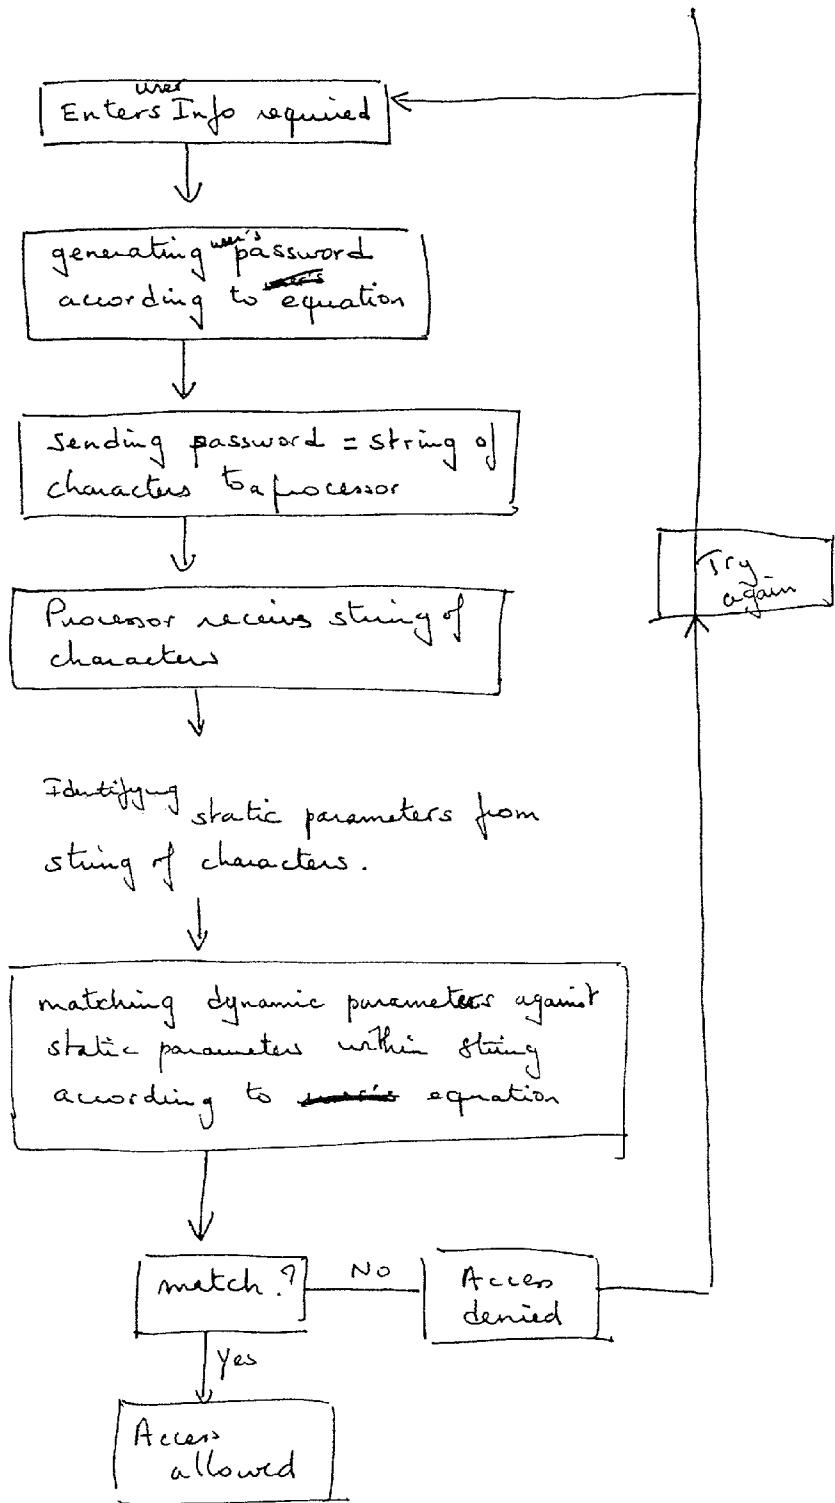 user
Enters Info required
generating user's password
according to user's equation
Sending password = string of
characters to a processor
Processor receives string of
characters
Identifying static parameters from
string of characters.
matching dynamic parameters against
static parameters within string
according to equation
match?
No
Access
denied
Yes
Access
allowed
Try
again